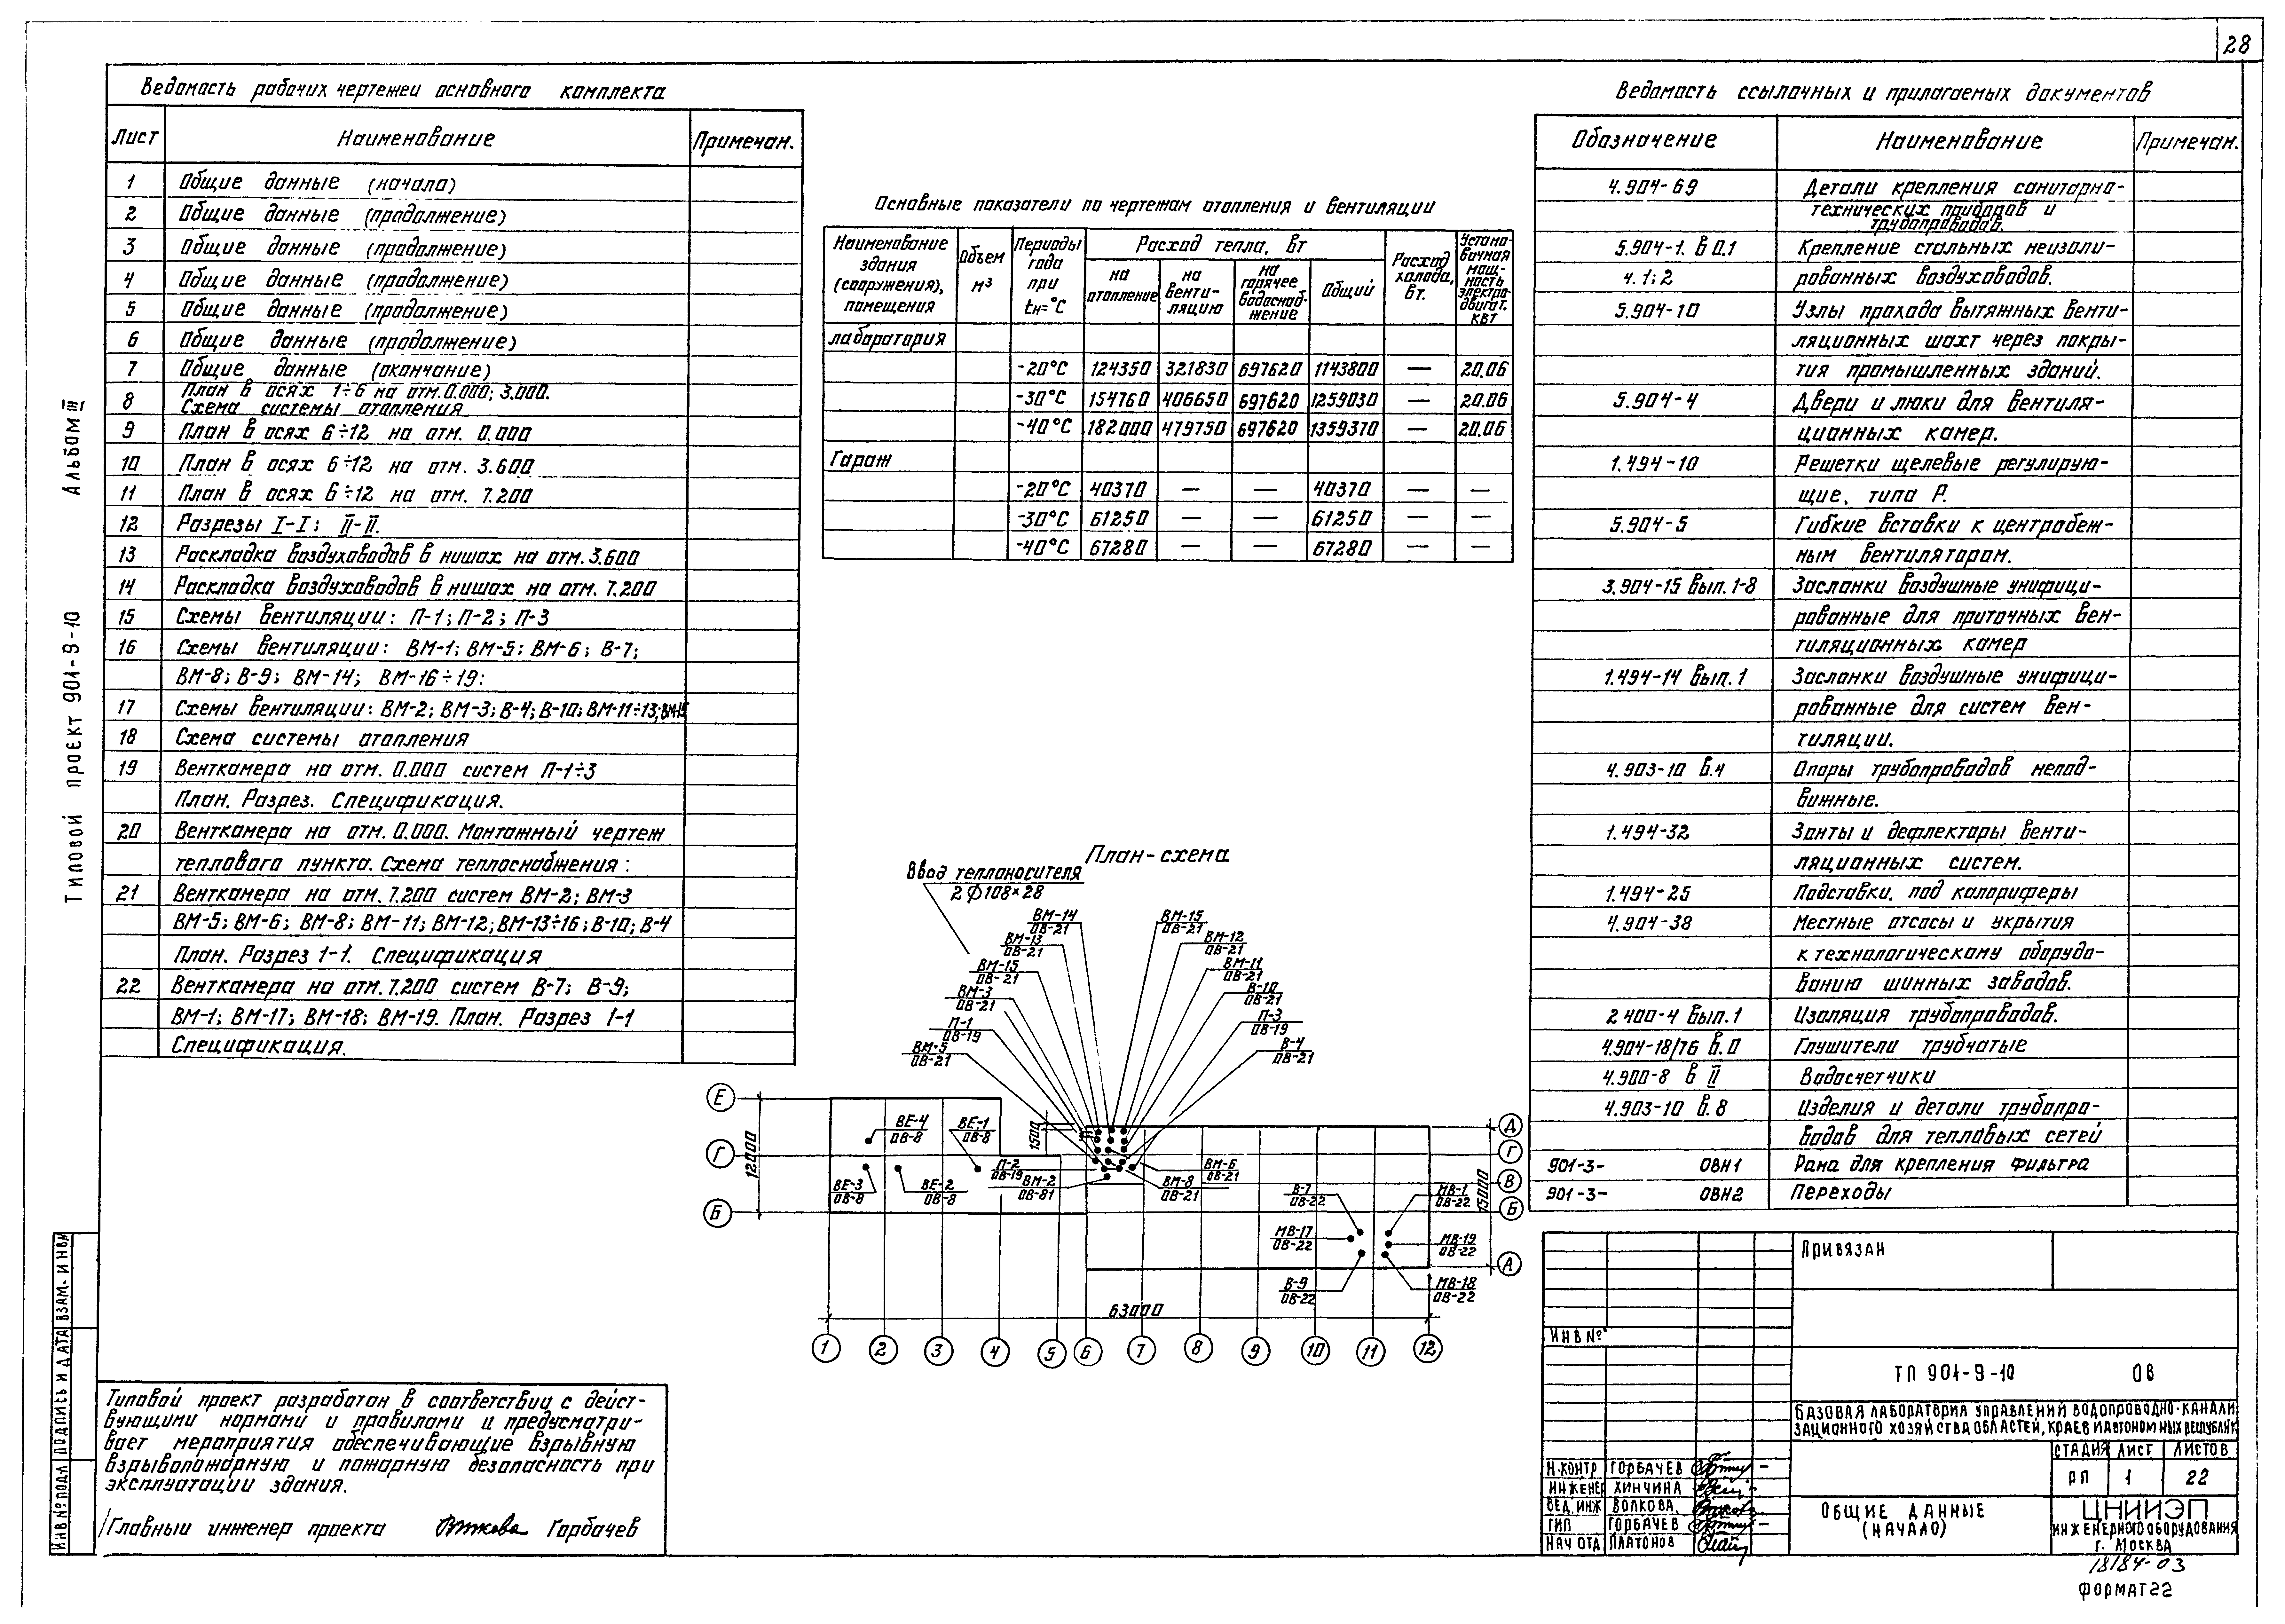 28
Ведомость рабочих чертежей основного комплекта
Лист Наименование Примечан.
1 Общие данные (начало)
2 Общие данные (продолжение)
3 Общие данные (продолжение)
4 Общие данные (продолжение)
5 Общие данные (продолжение)
6 Общие данные (продолжение)
7 Общие данные (окончание)
8 План в осях 1÷6 на отм. 0.000; 3.000.
Схема системы отопления
9 План в осях 6÷12 на отм. 0.000
10 План в осях 6÷12 на отм. 3.600
11 План в осях 6÷12 на отм. 7.200
12 Разрезы I-I; II-II.
13 Раскладка воздуховодов в нишах на отм. 3.600
14 Раскладка воздуховодов в нишах на отм. 7.200
15 Схемы вентиляции: П-1; П-2; П-3
16 Схемы вентиляции: ВМ-1; ВМ-5; ВМ-6; В-7;
ВМ-8; В-9; ВМ-14; ВМ-16÷19:
17 Схемы вентиляции: ВМ-2; ВМ-3; В-4; В-10; ВМ-11÷13; ВМ-15
18 Схема системы отопления
19 Венткамера на отм. 0.000 систем П-1÷3
План. Разрез. Спецификация.
20 Венткамера на отм. 0.000. Монтажный чертеж
теплового пункта. Схема теплоснабжения:
21 Венткамера на отм. 7.200 систем ВМ-2; ВМ-3
ВМ-5; ВМ-6; ВМ-8; ВМ-11; ВМ-12; ВМ-13÷16; В-10; В-4
План. Разрез 1-1. Спецификация
22 Венткамера на отм. 7.200 систем В-7; В-9;
ВМ-1; ВМ-17; ВМ-18; ВМ-19. План. Разрез 1-1
Спецификация.
Основные показатели по чертежам отопления и вентиляции
Наименование здания (сооружения), помещения
Объем м³
Периоды года при tн=°С
Расход тепла, вт
на отопление
на венти-ляцию
на горячее водоснаб-жение
Общий
Расход холода, вт.
Устано-вочная мощ-ность электро-двигат. квт
лаборатория
-20°С 124350 321830 697620 1143800 — 20.06
-30°С 154760 406650 697620 1259030 — 20.06
-40°С 182000 479750 697620 1359370 — 20.06
Гараж
-20°С 40370 — — 40370 — —
-30°С 61250 — — 61250 — —
-40°С 67280 — — 67280 — —
План-схема
Ввод теплоносителя
2 ф 108×28
ВМ-14
ОВ-21
ВМ-13
ОВ-21
ВМ-15
ОВ-21
ВМ-3
ОВ-21
П-1
ОВ-19
ВМ-5
ОВ-21
ВМ-15
ОВ-21
ВМ-12
ОВ-21
ВМ-11
ОВ-21
В-10
ОВ-21
П-3
ОВ-19
В-4
ОВ-21
Е
Г
Б
12000
ВЕ-4
ОВ-8
ВЕ-1
ОВ-8
ВЕ-3
ОВ-8
ВЕ-2
ОВ-8
1500
П-2
ОВ-19
ВМ-2
ОВ-81
ВМ-6
ОВ-21
ВМ-8
ОВ-21
В-7
ОВ-22
МВ-17
ОВ-22
В-9
ОВ-22
МВ-1
ОВ-22
МВ-19
ОВ-22
МВ-18
ОВ-22
Д
Г
В
Б
А
15000
63000
1 2 3 4 5 6 7 8 9 10 11 12
Ведомость ссылочных и прилагаемых документов
Обозначение Наименование Примечан.
4.904-69 Детали крепления санитарно-
технических приборов и
трубопроводов.
5.904-1. в 0.1 Крепление стальных неизоли-
ч. 1; 2 рованных воздуховодов.
5.904-10 Узлы прохода вытяжных венти-
ляционных шахт через покры-
тия промышленных зданий.
5.904-4 Двери и люки для вентиля-
ционных камер.
1.494-10 Решетки щелевые регулирую-
щие, типа Р.
5.904-5 Гибкие вставки к центробеж-
ным вентиляторам.
3.904-15 вып. 1-8 Заслонки воздушные унифици-
рованные для приточных вен-
тиляционных камер
1.494-14 вып. 1 Заслонки воздушные унифици-
рованные для систем вен-
тиляции.
4.903-10 в.4 Опоры трубопроводов непод-
вижные.
1.494-32 Зонты и дефлекторы венти-
ляционных систем.
1.494-25 Подставки. под калориферы
4.904-38 Местные отсосы и укрытия
к технологическому оборудо-
ванию шинных заводов.
2 400-4 вып. 1 Изоляция трубопроводов.
4.904-18/76 в.0 Глушители трубчатые
4.900-8 в II Водосчетчики
4.903-10 в. 8 Изделия и детали трубопро-
водов для тепловых сетей
901-3- ОВН1 Рама для крепления фильтра
901-3- ОВН2 Переходы
Типовой проект разработан в соответствии с дейст-
вующими нормами и правилами и предусматри-
вает мероприятия обеспечивающие взрывную
взрывопожарную и пожарную безопасность при
эксплуатации здания.
Главный инженер проекта Горбачев
Типовой проект 901-9-10 Альбом III
ИНВ № ПОДЛ ПОДПИСЬ И ДАТА ВЗАМ. ИНВ №
ПРИВЯЗАН
ИНВ №
ТП 901-9-10 ОВ
БАЗОВАЯ ЛАБОРАТОРИЯ УПРАВЛЕНИЙ ВОДОПРОВОДНО-КАНАЛИ
ЗАЦИОННОГО ХОЗЯЙСТВА ОБЛАСТЕЙ, КРАЕВ И АВТОНОМНЫХ РЕСПУБЛИК
СТАДИЯ ЛИСТ ЛИСТОВ
РП 1 22
Н.КОНТР ГОРБАЧЕВ
ИНЖЕНЕР ХИНЧИНА
ВЕД. ИНЖ ВОЛКОВА
ГИП ГОРБАЧЕВ
НАЧ ОТД ПЛАТОНОВ
ОБЩИЕ ДАННЫЕ
(НАЧАЛО)
ЦНИИЭП
ИНЖЕНЕРНОГО ОБОРУДОВАНИЯ
Г. МОСКВА
18184-03
ФОРМАТ 22